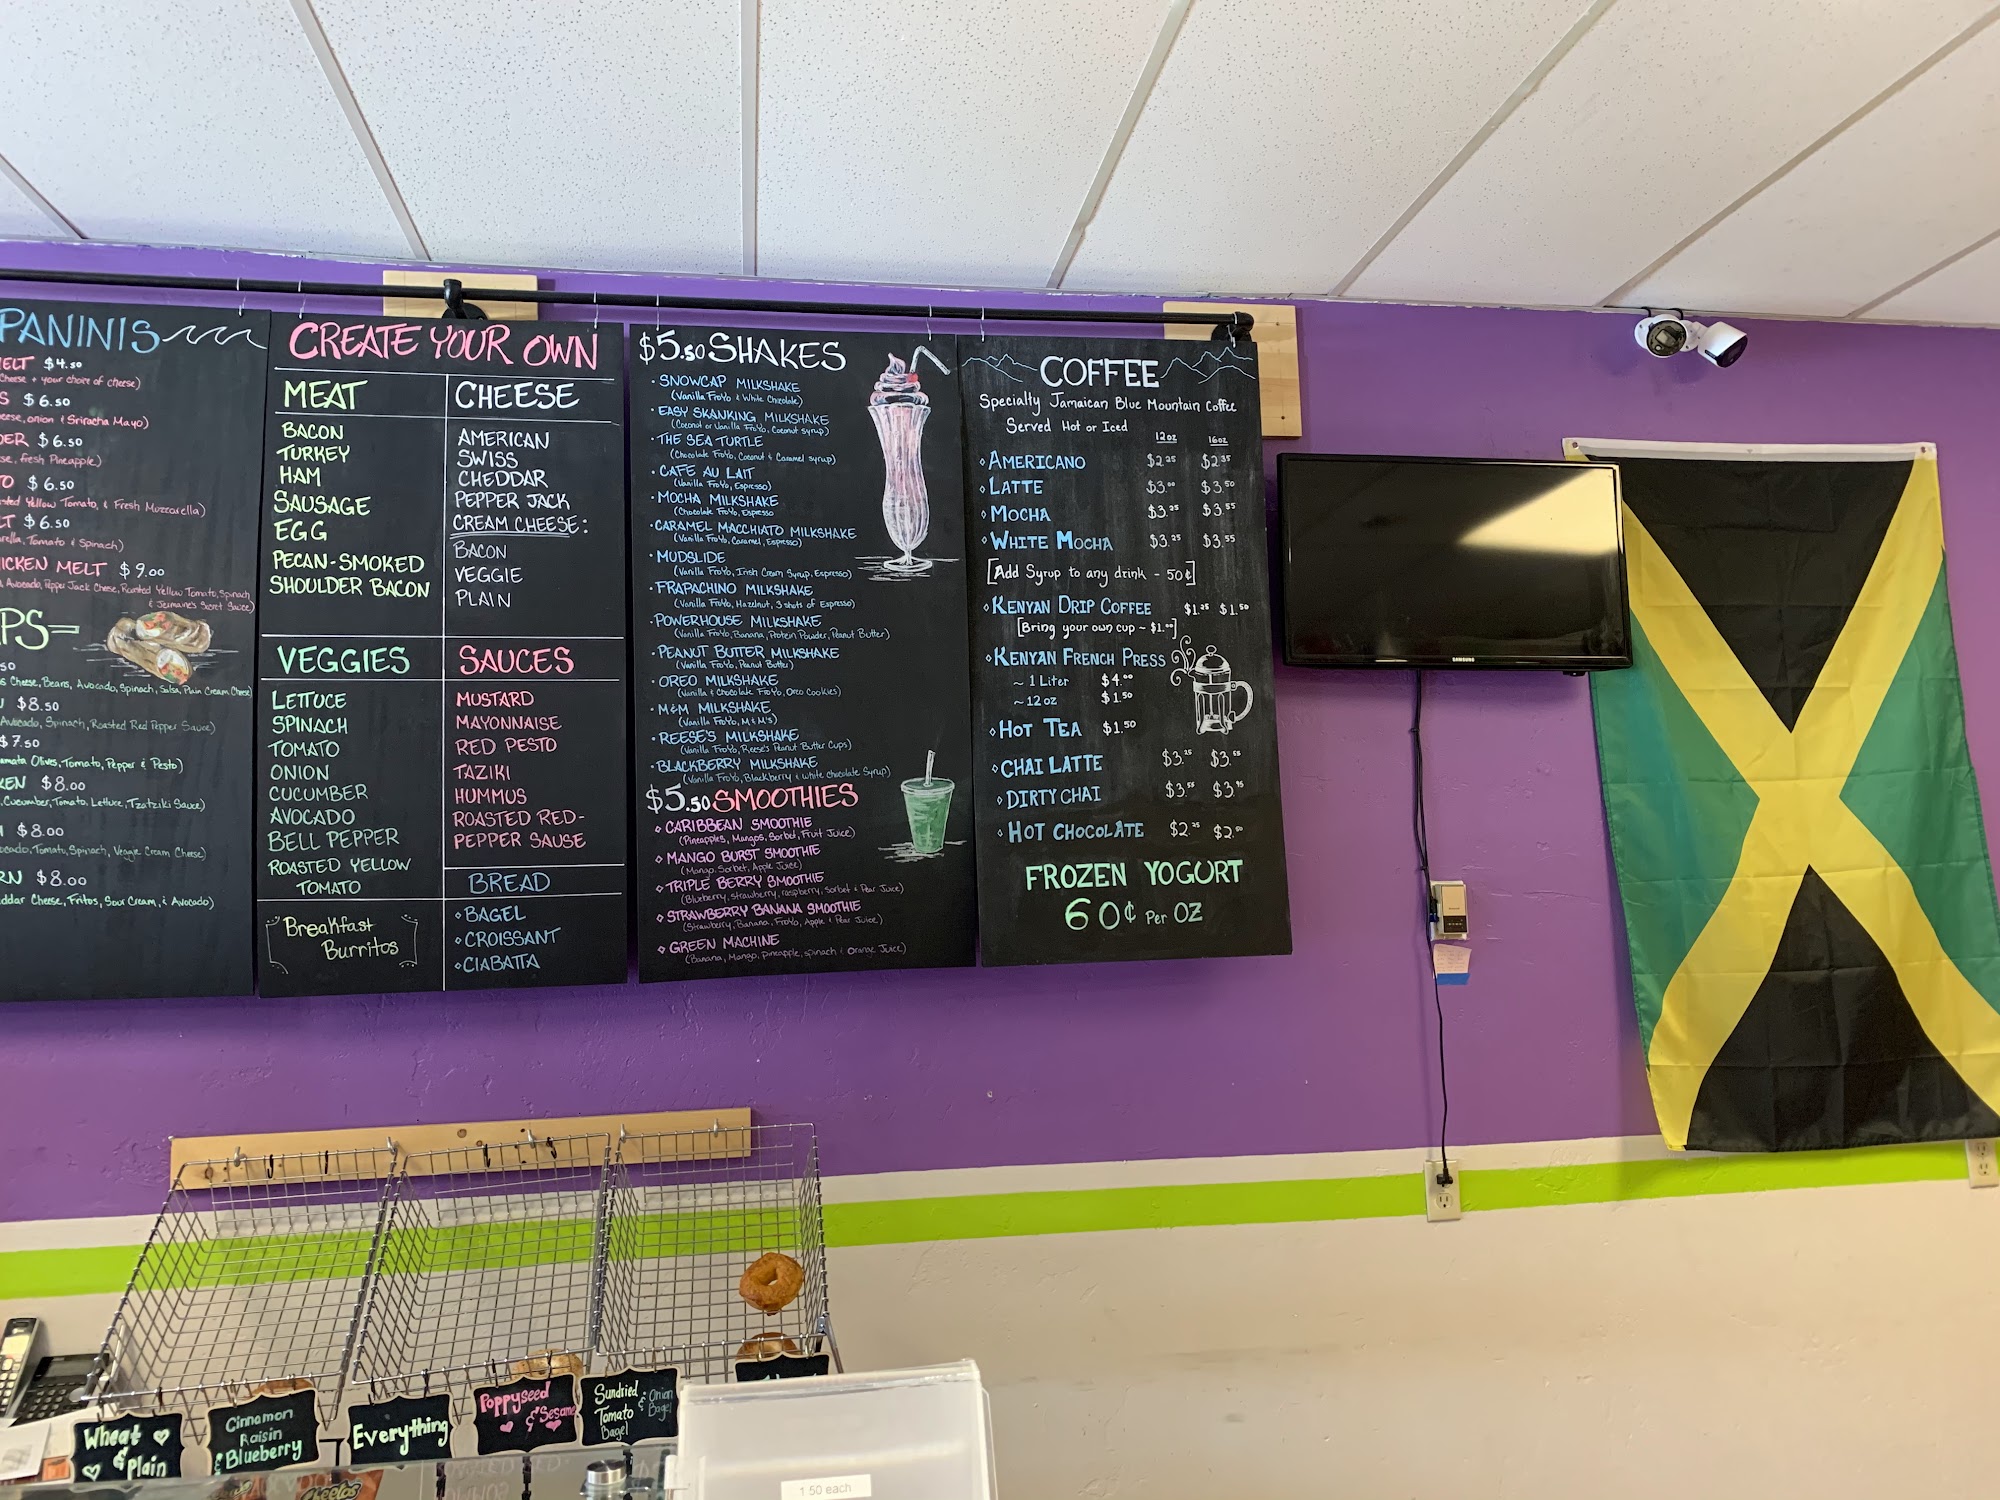 PANINIS
MELT $4.50
Cheese + your choice of cheese)
$6.50
onion & Sriracha Mayo)
$6.50
fresh Pineapple)
$6.50
Yellow Tomato, & Fresh Mozzarella)
$6.50
Tomato & Spinach)
CHICKEN MELT $9.00
Avocado, Pepper Jack Cheese, Roasted Yellow Tomato, Spinach
& Jermaine's Secret Sauce)
Cheese, Beans, Avocado, Spinach, Salsa, Plain Cream Cheese)
$8.50
Avocado, Spinach, Roasted Red Pepper Sauce)
$7.50
Olives, Tomato, Pepper & Pesto)
$8.00
Cucumber, Tomato, Lettuce, Tzatziki Sauce)
$8.00
Tomato, Spinach, Veggie Cream Cheese)
$8.00
Cheese, Fritos, Sour Cream, & Avocado)
CREATE YOUR OWN
MEAT
BACON
TURKEY
HAM
SAUSAGE
EGG
PECAN-SMOKED
SHOULDER BACON
CHEESE
AMERICAN
SWISS
CHEDDAR
PEPPER JACK
CREAM CHEESE:
BACON
VEGGIE
PLAIN
VEGGIES
LETTUCE
SPINACH
TOMATO
ONION
CUCUMBER
AVOCADO
BELL PEPPER
ROASTED YELLOW
TOMATO
SAUCES
MUSTARD
MAYONNAISE
RED PESTO
TAZIKI
HUMMUS
ROASTED RED-
PEPPER SAUSE
Breakfast
Burritos
BREAD
BAGEL
CROISSANT
CIABATTA
$5.50 SHAKES
SNOWCAP MILKSHAKE
(Vanilla FroYo & White Chocolate)
EASY SKANKING MILKSHAKE
(Coconut or Vanilla FroYo, Coconut syrup)
THE SEA TURTLE
(Chocolate FroYo, Coconut & Caramel syrup)
CAFE AU LAIT
(Vanilla FroYo, Espresso)
MOCHA MILKSHAKE
(Chocolate FroYo, Espresso
CARAMEL MACCHIATO MILKSHAKE
(Vanilla FroYo, Caramel, Espresso)
MUDSLIDE
(Vanilla FroYo, Irish Cream Syrup, Espresso)
FRAPACHINO MILKSHAKE
(Vanilla FroYo, Hazelnut, 3 shots of Espresso)
POWERHOUSE MILKSHAKE
(Vanilla FroYo, Banana, Protein Powder, Peanut Butter)
PEANUT BUTTER MILKSHAKE
(Vanilla FroYo, Peanut Butter)
OREO MILKSHAKE
(Vanilla & Chocolate FroYo, Oreo Cookies)
M&M MILKSHAKE
(Vanilla FroYo, M&M's)
REESE'S MILKSHAKE
(Vanilla FroYo, Reese's Peanut Butter Cups)
BLACKBERRY MILKSHAKE
(Vanilla FroYo, Blackberry & White chocolate Syrup)
$5.50 SMOOTHIES
CARIBBEAN SMOOTHIE
(Pineapples, Mangos, Sorbet, Fruit Juice)
MANGO BURST SMOOTHIE
(Mango, Sorbet, Apple Juice)
TRIPLE BERRY SMOOTHIE
(Blueberry, strawberry, raspberry, sorbet & Pear Juice)
STRAWBERRY BANANA SMOOTHIE
(Strawberry, Banana, FroYo, Apple & Pear Juice)
GREEN MACHINE
(Banana, Mango, pineapple, spinach & Orange Juice)
COFFEE
Specialty Jamaican Blue Mountain Coffee
Served Hot or Iced
12oz 16oz
AMERICANO $2.25 $2.35
LATTE $3.00 $3.50
MOCHA $3.25 $3.55
WHITE MOCHA $3.25 $3.55
[Add Syrup to any drink - 50¢]
KENYAN DRIP COFFEE $1.25 $1.50
[Bring your own cup ~ $1.00]
KENYAN FRENCH PRESS
~ 1 Liter $4.00
~ 12 oz $1.50
HOT TEA $1.50
CHAI LATTE $3.25 $3.55
DIRTY CHAI $3.55 $3.95
HOT CHOCOLATE $2.25 $2.50
FROZEN YOGURT
60¢ Per OZ
SAMSUNG
Wheat
& Plain
Cinnamon
Raisin
& Blueberry
Everything
Poppyseed
& Sesame
Sundried
Tomato
Bagel
& Onion
Bagel
Cheetos
1.50 each